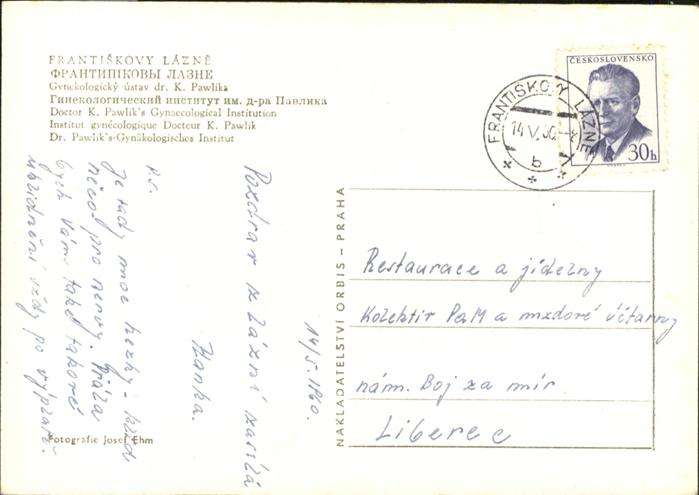 FRANTIŠKOVY LÁZNĚ
ФРАНТИШКОВЫ ЛАЗНЕ
Gynekologický ústav dr. K. Pawlika
Гинекологический институт им. д-ра Павлика
Doctor K. Pawlik's Gynaecological Institution
Institut gynécologique Docteur K. Pawlik
Dr. Pawlik's-Gynäkologisches Institut
ČESKOSLOVENSKO
30h
FRANTIŠKOVY LÁZNĚ
14.V.60
b
14/5. 1960.
Pozdrav z Lázní zasílá
Hanka.
P.S.
Je tady moc hezky - klid
něco pro nervy. Přála
bych Vám také takové
uklidnění vždy po výplatě.
NAKLADATELSTVÍ ORBIS – PRAHA
Restaurace a jídelny
Kolektiv PaM a mzdové účtárny
nám. Boj za mír
Liberec
Fotografie Josef Ehm